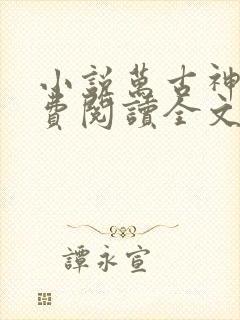 小説萬古神
費閱讀全文
譚永宣